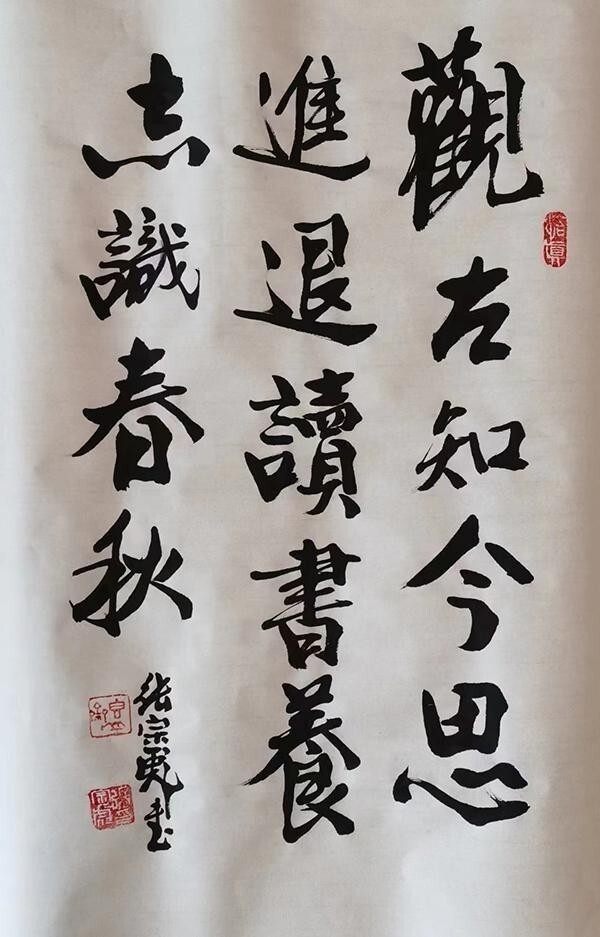 觀古知今思
進退讀書養
志識春秋
張宗彪書